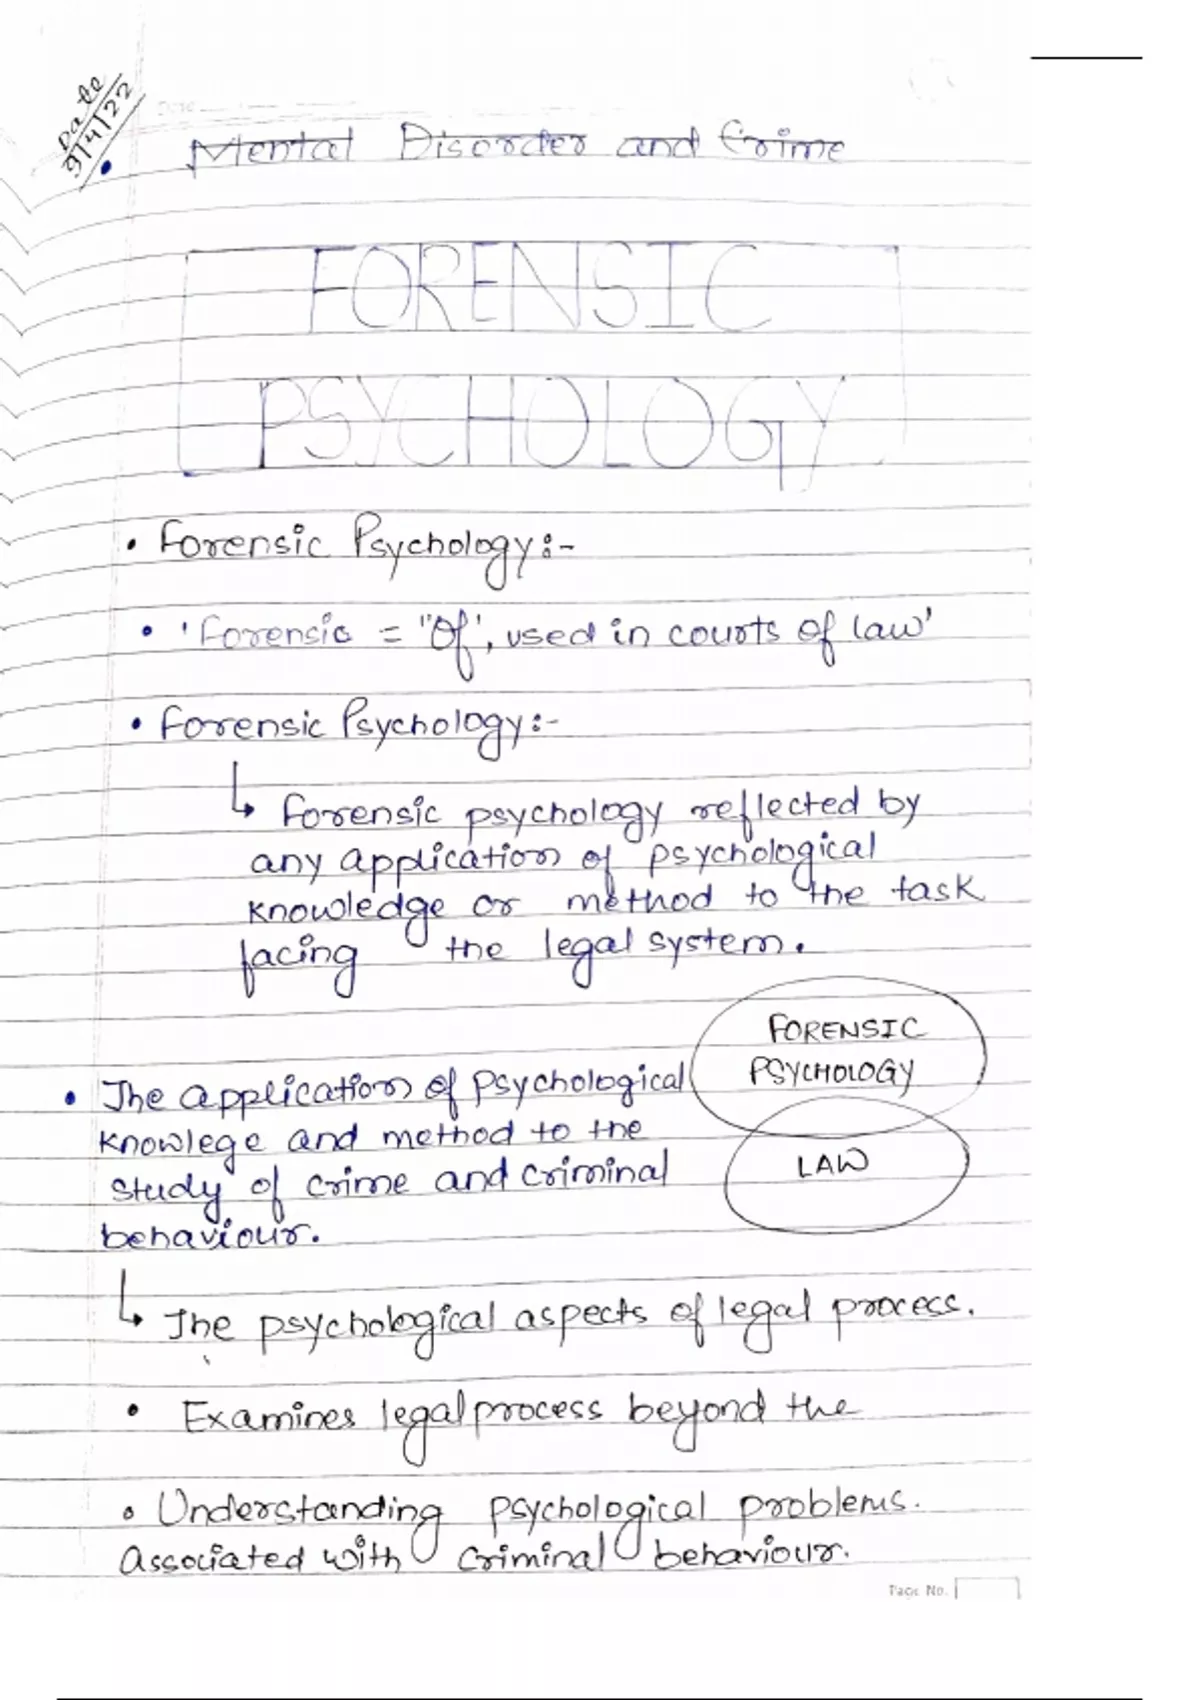 Date
9/4/22
• Mental Disorder and Crime
FORENSIC
PSYCHOLOGY
• Forensic Psychology:-
• 'Forensic = "Of', used in courts of law'
• Forensic Psychology:-
↳ Forensic psychology reflected by
any application of psychological
knowledge or method to the task
facing the legal system.
FORENSIC
PSYCHOLOGY
LAW
• The application of psychological
knowlege and method to the
study of crime and criminal
behaviour.
↳ The psychological aspects of legal process.
• Examines legal process beyond the
• Understanding psychological problems.
associated with criminal behaviour.
Page No.